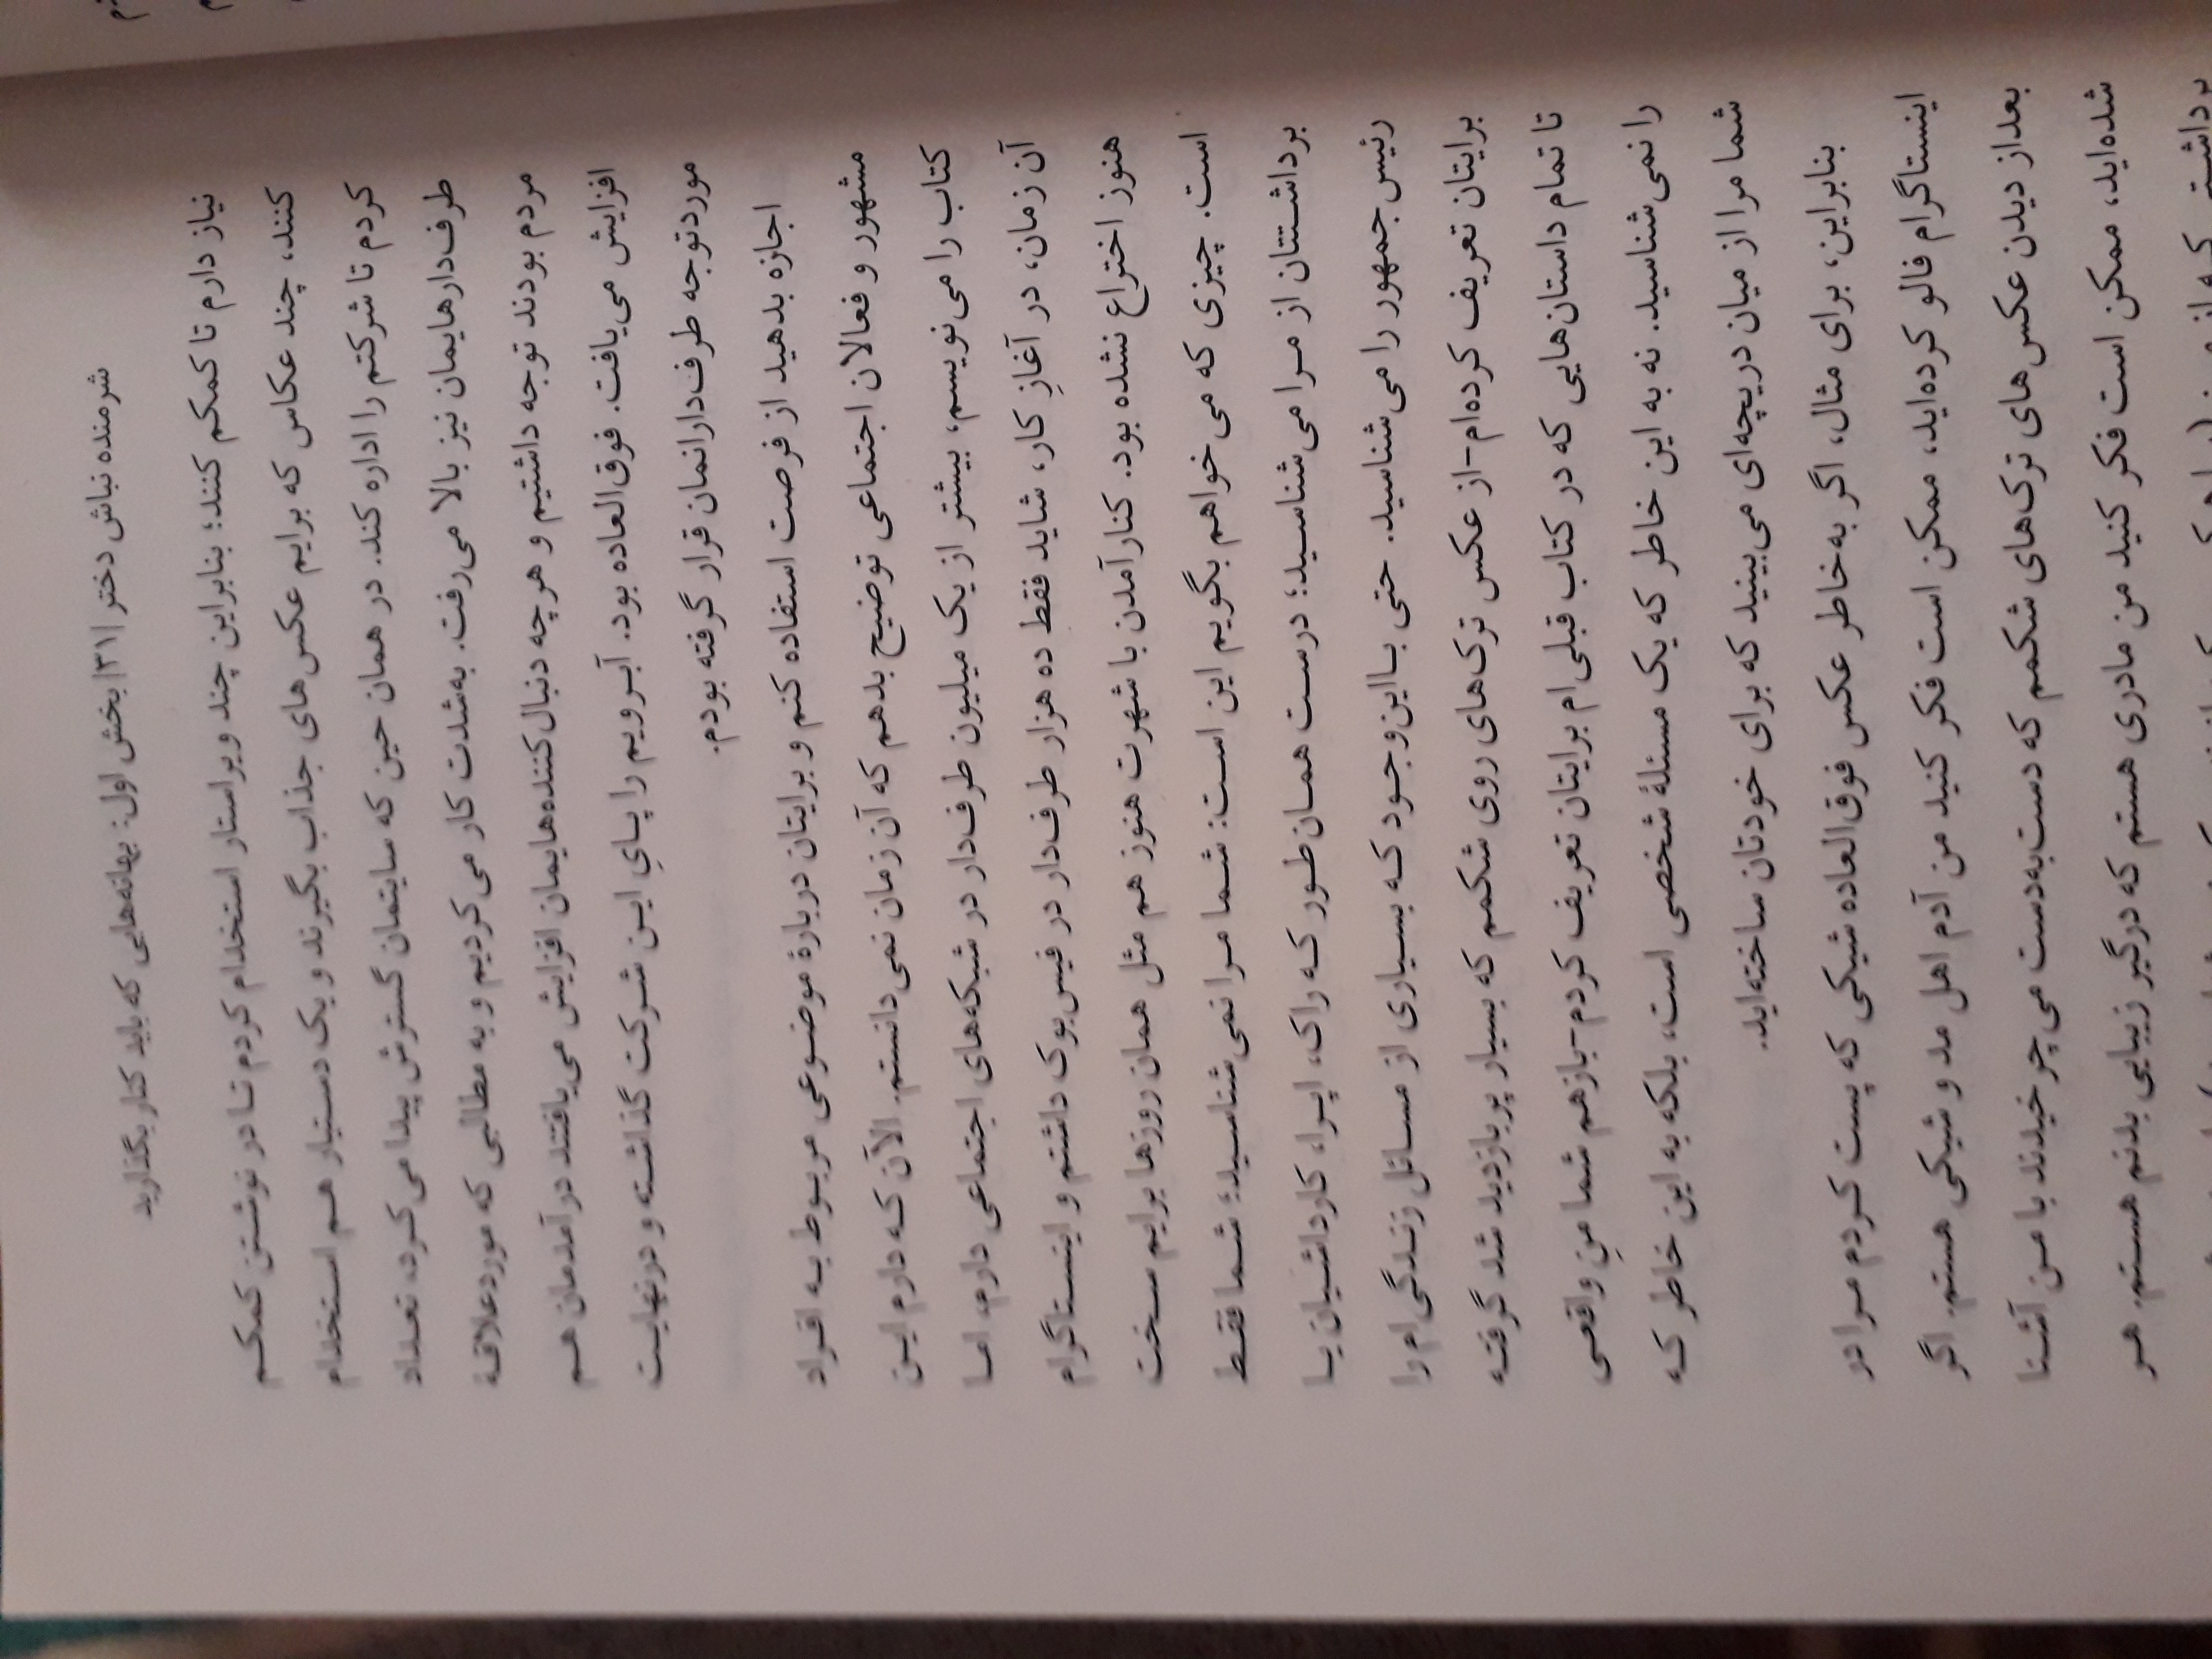 شرمنده نباش دختر |۳۱| بخش اول: بهانه‌هایی که باید کنار بگذارید
نیاز دارم تا کمکم کنند؛ بنابراین چند ویراستار استخدام کردم تا در نوشتن کمکم
کنند، چند عکاس که برایم عکس‌های جذاب بگیرند و یک دستیار هم استخدام
کردم تا شرکتم را اداره کند. در همان حین که سایتمان گسترش پیدا می‌کرد، تعداد
طرف‌دارهایمان نیز بالا می‌رفت. به‌شدت کار می‌کردیم و به مطالبی که موردعلاقهٔ
مردم بودند توجه داشتیم و هرچه دنبال‌کننده‌هایمان افزایش می‌یافتند درآمدمان هم
افزایش می‌یافت. فوق‌العاده بود. آبرویم را پایِ این شرکت گذاشته و درنهایت
موردتوجه طرف‌دارانمان قرار گرفته بودم.
اجازه بدهید از فرصت استفاده کنم و برایتان دربارهٔ موضوعی مربوط به افراد
مشهور و فعالان اجتماعی توضیح بدهم که آن زمان نمی‌دانستم. الآن که دارم این
کتاب را می‌نویسم، بیشتر از یک میلیون طرف‌دار در شبکه‌های اجتماعی دارم، اما
آن زمان، در آغازِ کار، شاید فقط ده هزار طرف‌دار در فیس‌بوک داشتم و اینستاگرام
هنوز اختراع نشده بود. کنارآمدن با شهرت هنوز هم مثل همان روزها برایم سخت
است. چیزی که می‌خواهم بگویم این است: شما مرا نمی‌شناسید؛ شما فقط
برداشتتان از مرا می‌شناسید؛ درست همان‌طور که راک، اپرا، کارداشیان یا
رئیس‌جمهور را می‌شناسید. حتی بااین‌وجود که بسیاری از مسائل زندگی‌ام را
برایتان تعریف کرده‌ام-از عکس ترک‌های روی شکمم که بسیار پربازدید شد گرفته
تا تمام داستان‌هایی که در کتاب قبلی‌ام برایتان تعریف کردم-بازهم شما منِ واقعی
را نمی‌شناسید. نه به این خاطر که یک مسئلهٔ شخصی است، بلکه به این خاطر که
شما مرا از میان دریچه‌ای می‌بینید که برای خودتان ساخته‌اید.
بنابراین، برای مثال، اگر به‌خاطر عکس فوق‌العاده شیکی که پست کردم مرا در
اینستاگرام فالو کرده‌اید، ممکن است فکر کنید من آدم اهل مد و شیکی هستم. اگر
بعداز دیدن عکس‌های ترک‌های شکمم که دست‌به‌دست می‌چرخیدند با من آشنا
شده‌اید، ممکن است فکر کنید من مادری هستم که درگیر زیبایی بدنم هستم. هر